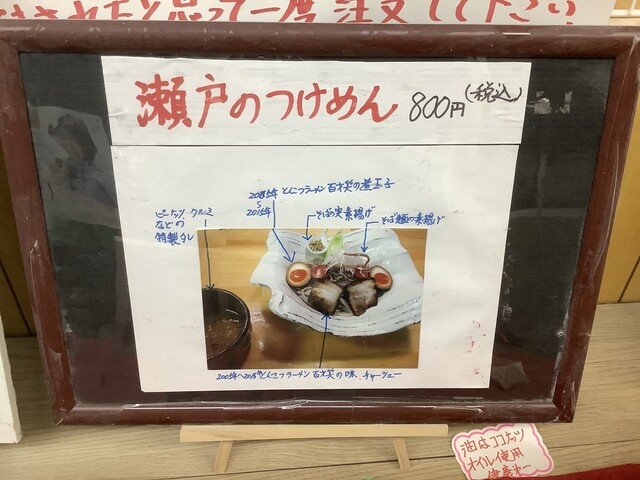 思って一度注文して下さい
瀬戸のつけめん 800円 (税込)
とんこつラーメン百才笑の煮玉子
~2015年
そばの実素揚げ
そば麺の素揚げ
ピーナッツ クルミ
などの
特製タレ
とんこつラーメン百才笑の味、チャーシュー
油はココナッツ
オイル使用
健康オー